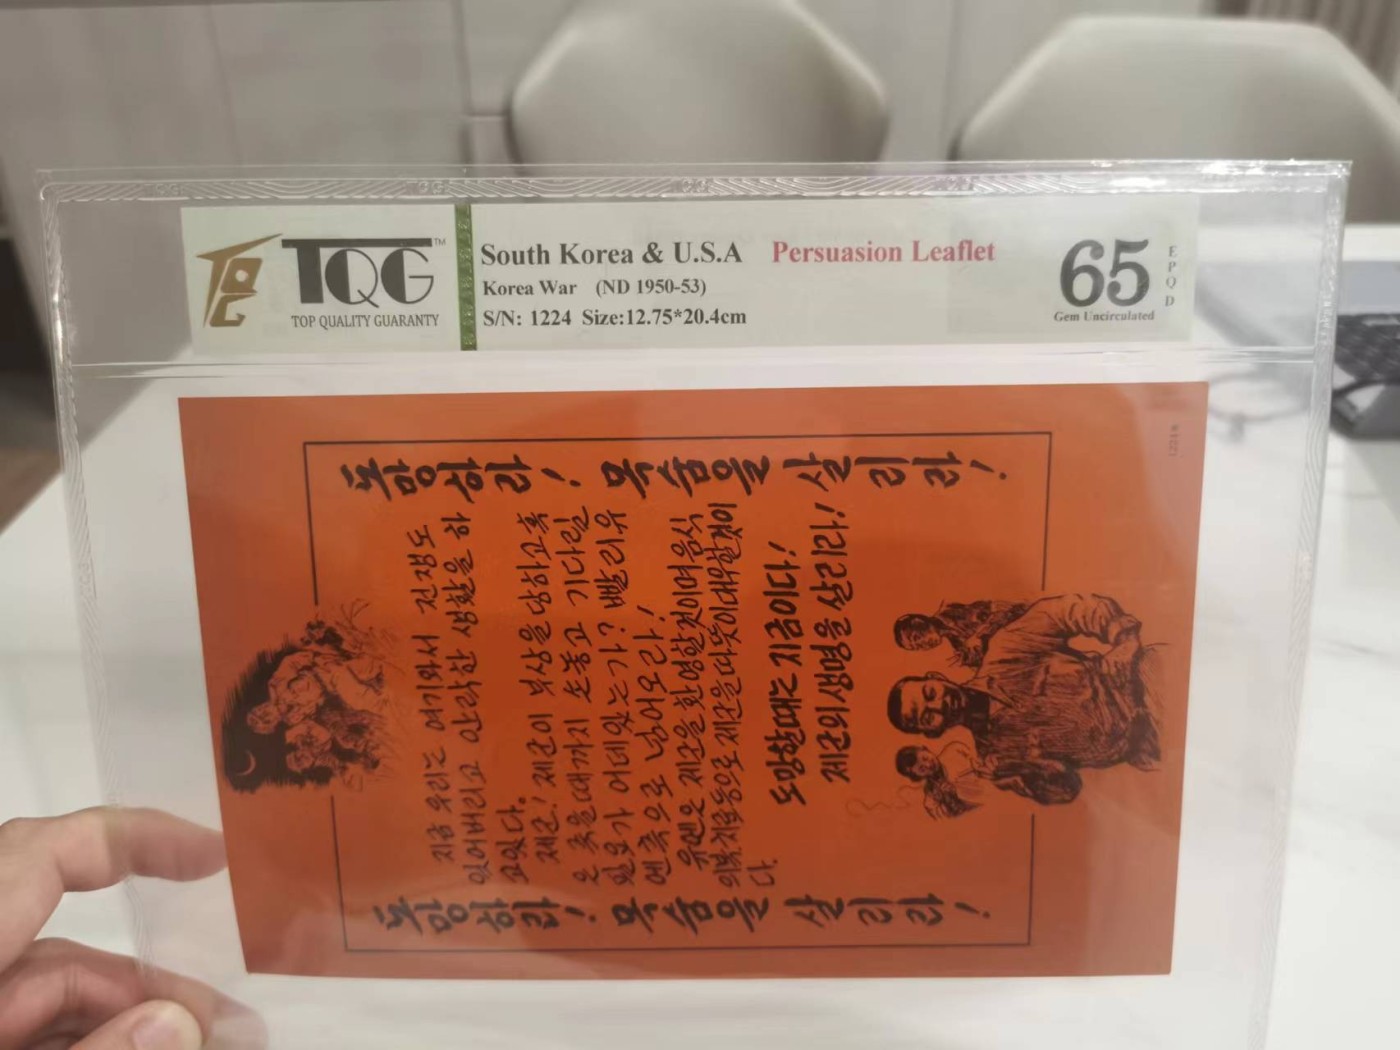 TQG™
TOP QUALITY GUARANTY
South Korea & U.S.A Persuasion Leaflet
Korea War (ND 1950-53)
S/N: 1224 Size:12.75*20.4cm
65
EPQD
Gem Uncirculated
목숨을 살릴 길!
지금 우리는 여기와서 전쟁도
잊어버리고 안락한 생활을 하
고있다.
제군! 제군이 부상을당하고혹
은 죽을때까지 손놓고 기다릴
필요가 어데있는가? 빨리유
엔쪽으로 넘어오라!
유엔은 제군을환영할것이며음식
의복치료등으로제군을따뜻이대우할것이
다.
도망할때는 지금이다!
제군의생명을살리라!
목숨을 살릴 길!